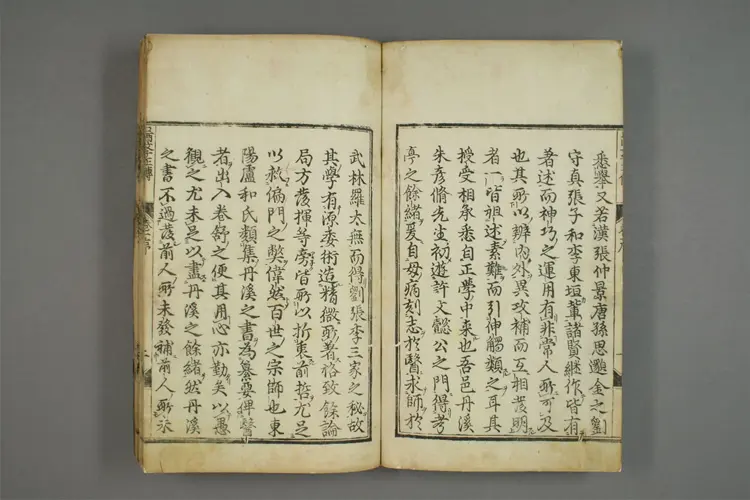 悉舉又若漢張仲景唐孫思邈金之劉
守真張子和李東垣輩諸賢継作皆有
著述而神巧之運用有非常人所可及
也其所以辨內外異攻補而互相發明
者一皆祖述素難而引伸觸類之耳其
授受相承悉自正學中来也吾邑丹溪
朱彦脩先生初遊許文懿公之門得考
亭之餘緒爰自母病刻志扵醫求師扵
武林羅太無而得劉張李三家之秘故
其學有源委術造精微所著格致餘論
局方發揮等劳皆所以折衷前哲尤足
以救偏門之獘偉然百世之宗師也東
陽盧和氏類集丹溪之書為纂要俾醫
者出入卷舒之便其用心亦勤矣以愚
觀之尤未足以盡丹溪之餘緒然丹溪
之書不過發前人所未發補前人所未